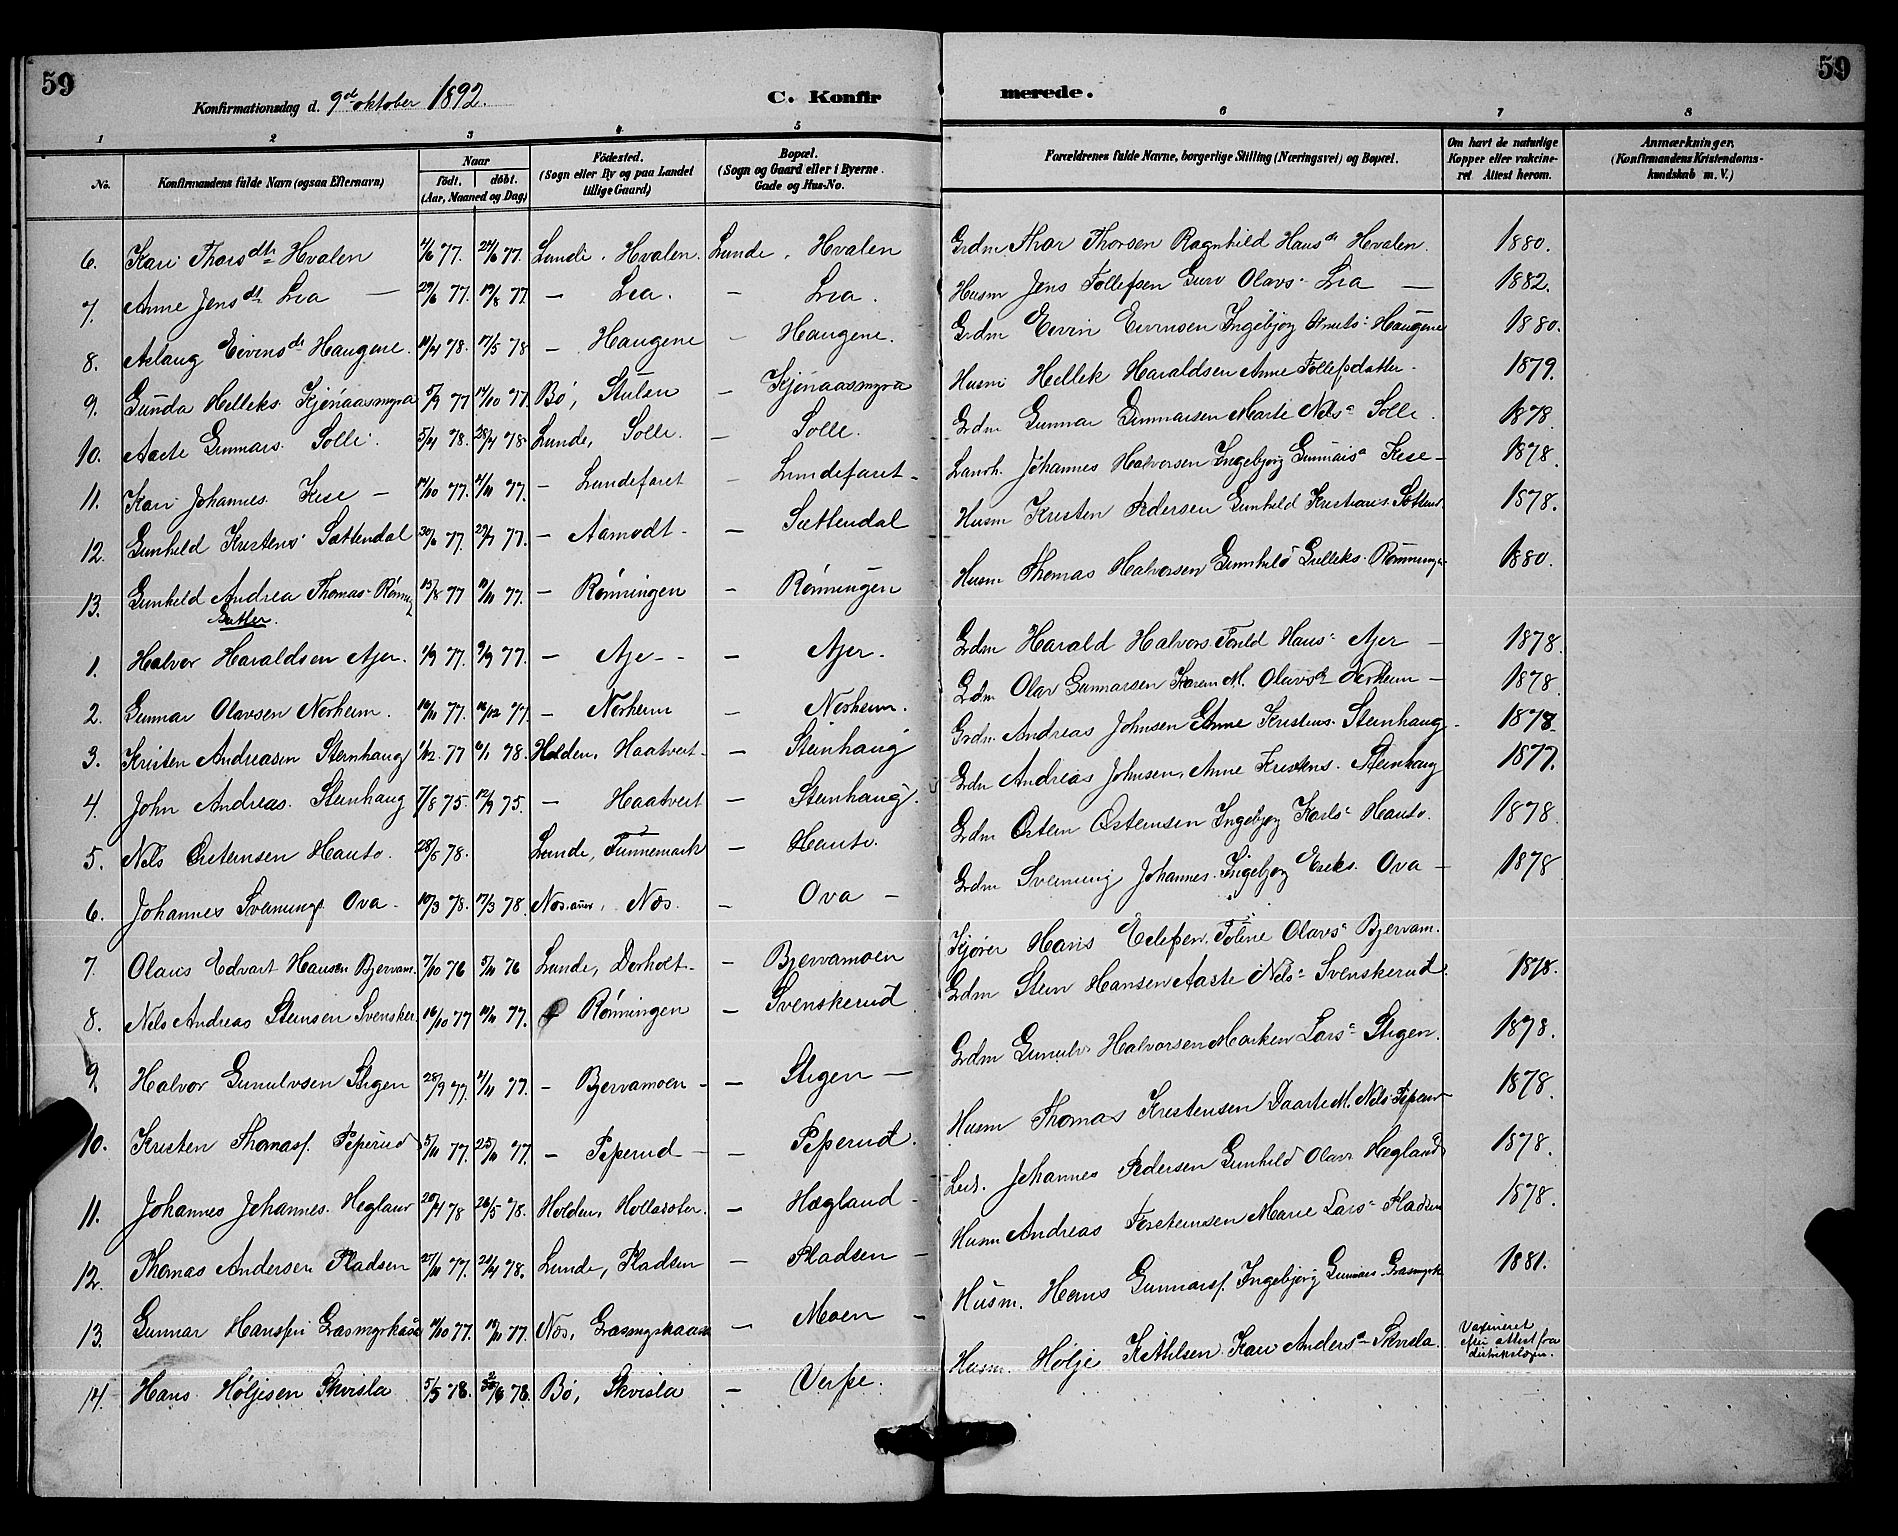 59
59
Konfirmationsdag d. 9d oktober 1892.
C. Konfirmerede.
1 2 3 4 5 6 7 8
No. Konfirmandens fulde Navn (ogsaa Efternavn) Naar födt. döbt. (Aar, Maaned og Dag) Födested. (Sogn eller By og paa Landet tillige Gaard) Bopæl. (Sogn og Gaard eller i Byerne Gade og Hus-No. Forældrenes fulde Navne, borgerlige Stilling (Næringsvei) og Bopæl. Om havt de naturlige Kopper eller vakcineret Attest herom. Anmærkninger. (Konfirmandens Kristendomskundskab m. V.)
6. Kari Thorsdtr Hvalen 4/6 77. 24/6 77. Lunde. Hvalen. Lunde. Hvalen Grdm Thor Thorsen Ragnhild Hansdr Hvalen. 1880.
7. Anne Jensdt Lia — 29/6 77. 19/8 77. — Lia. — Lia. Husm Jens Tollefsen Guro Olavs- Lia — 1882.
8. Aslaug Eivinsdr Haugene. 14/4 78. 17/5 78 — Haugene — Haugene. Grdm Eivin Eivinsen Ingebjög Knuts- Haugene 1880.
9. Gunda Helleks. Kjönaasmyra 5/9 77 14/10 77. Bö, Stulen — Kjönaasmyra Husm Hellek Haraldsen Anne Tollefsdatter. 1879.
10. Aaste Gunnars. Solli. 5/4 78. 28/4 78. Lunde, Solli. — Solli. Grdm Gunnar Gunnarsen Marte Nils- Solli. 1878
11. Kari Johannes. Kise — 14/10 77. 4/11 77. — Lundefaret — Lundefaret. Lanrh. Johannes Halvorsen Ingebjörg Gunnars- Kise — 1878.
12. Gunhild Kristens. Sættendal 30/6 77. 29/7 77. — Aamodt — Sættendal Husm Kristen Pedersen Gunhild Kristians. 1878.
13. Gunhild Andrea Thomas- 15/8 77 11/11 77. — Rönningen — Rönningen Husm Thomas Halvorsen Gunhild Gulleks. Rönningen 1880.
Gutter.
1. Halvor Haraldsen Ajer. 1/9 77. 9/9 77. — Aje- — Ajer. Grdm Harald Halvors. Hans- Ajer — 1878.
2. Gunnar Olavsen Norheim. 77. 16/12 77. — Norheim — Norheim. Grdm Olav Gunnarsen Karen M. Olavsdr Norheim — 1878.
3. Kristen Andreasen Steinhaug 1/12 77 6/1 78. Holden, Haatveit — Steinhaug Grdm. Andreas Johnsen Anne Kristens. Steinhaug. 1878.
4. John Andreas. Steinhaug 7/8 75. 12/9 75. — Haatveit — Steinhaug. Grdm Andreas Johnsen, Anne Kristens. Steinhaug 1877.
5. Nils Östensen Hauto. 28/5 78. Lunde, Tunnemark — Hauto. Grdm Östen Östensen Ingebjög Karls- Hauto. 1878.
6. Johannes Sveinungs. Ova. 10/3 78. 17/3 78. Næs. Næs. — Ova — Grdm Sveinung Johannes. Ingebjög Eriks. Ova — 1878
7. Olaus Edvart Hansen Bjervam. 7/10 76 5/11 76 Lunde, Dorholt. — Bjervamoen Kjörer Hans Ellefsen. Toline Olavs- Bjervam.
8. Nils Andreas Steinsen Svensker. 16/10 77 11/11 77. — Rönningen — Svenskerud Grdm Stein Hansen Aaste Nils- Svenskerud. 1878.
9. Halvor Gunulvsen Stigen 28/9 77. 4/11 77. — Bjervamoen — — Stigen — Grdm Gunulv Halvorsen Marken Lars- Stigen. 1878.
10. Kristen Thomass. Peperud 5/11 77. 25/11 77. — Peperud — — Peperud. Husm Thomas Kristensen Daarte M. Nils- 1878.
11. Johannes Johannes. Hegland 20/4 78 26/5 78. Holden, — Hægland. Leis. Johannes Pedersen Gunhild Olavs Hægland 1878.
12. Thomas Andersen Pladsen 27/11 77. 22/4 78. Lunde, Pladsen — Pladsen — Husm Andreas Torsteinsen Marie Lars- Pladsen 1878.
13. Gunnar Hanssen 14/10 77. 18/11 77. Næs, — Moen — Husm. Hans Gunnars. Ingebjörg Gunnars. 1881.
14. Hans Höljesen Skvisla 5/5 78. 78. Bö, Skvisla — Verpe. Husm. Hölje Kittilsen. Kari Anders- Skvisla. Vaxineret efter attest fra distriktslægen.